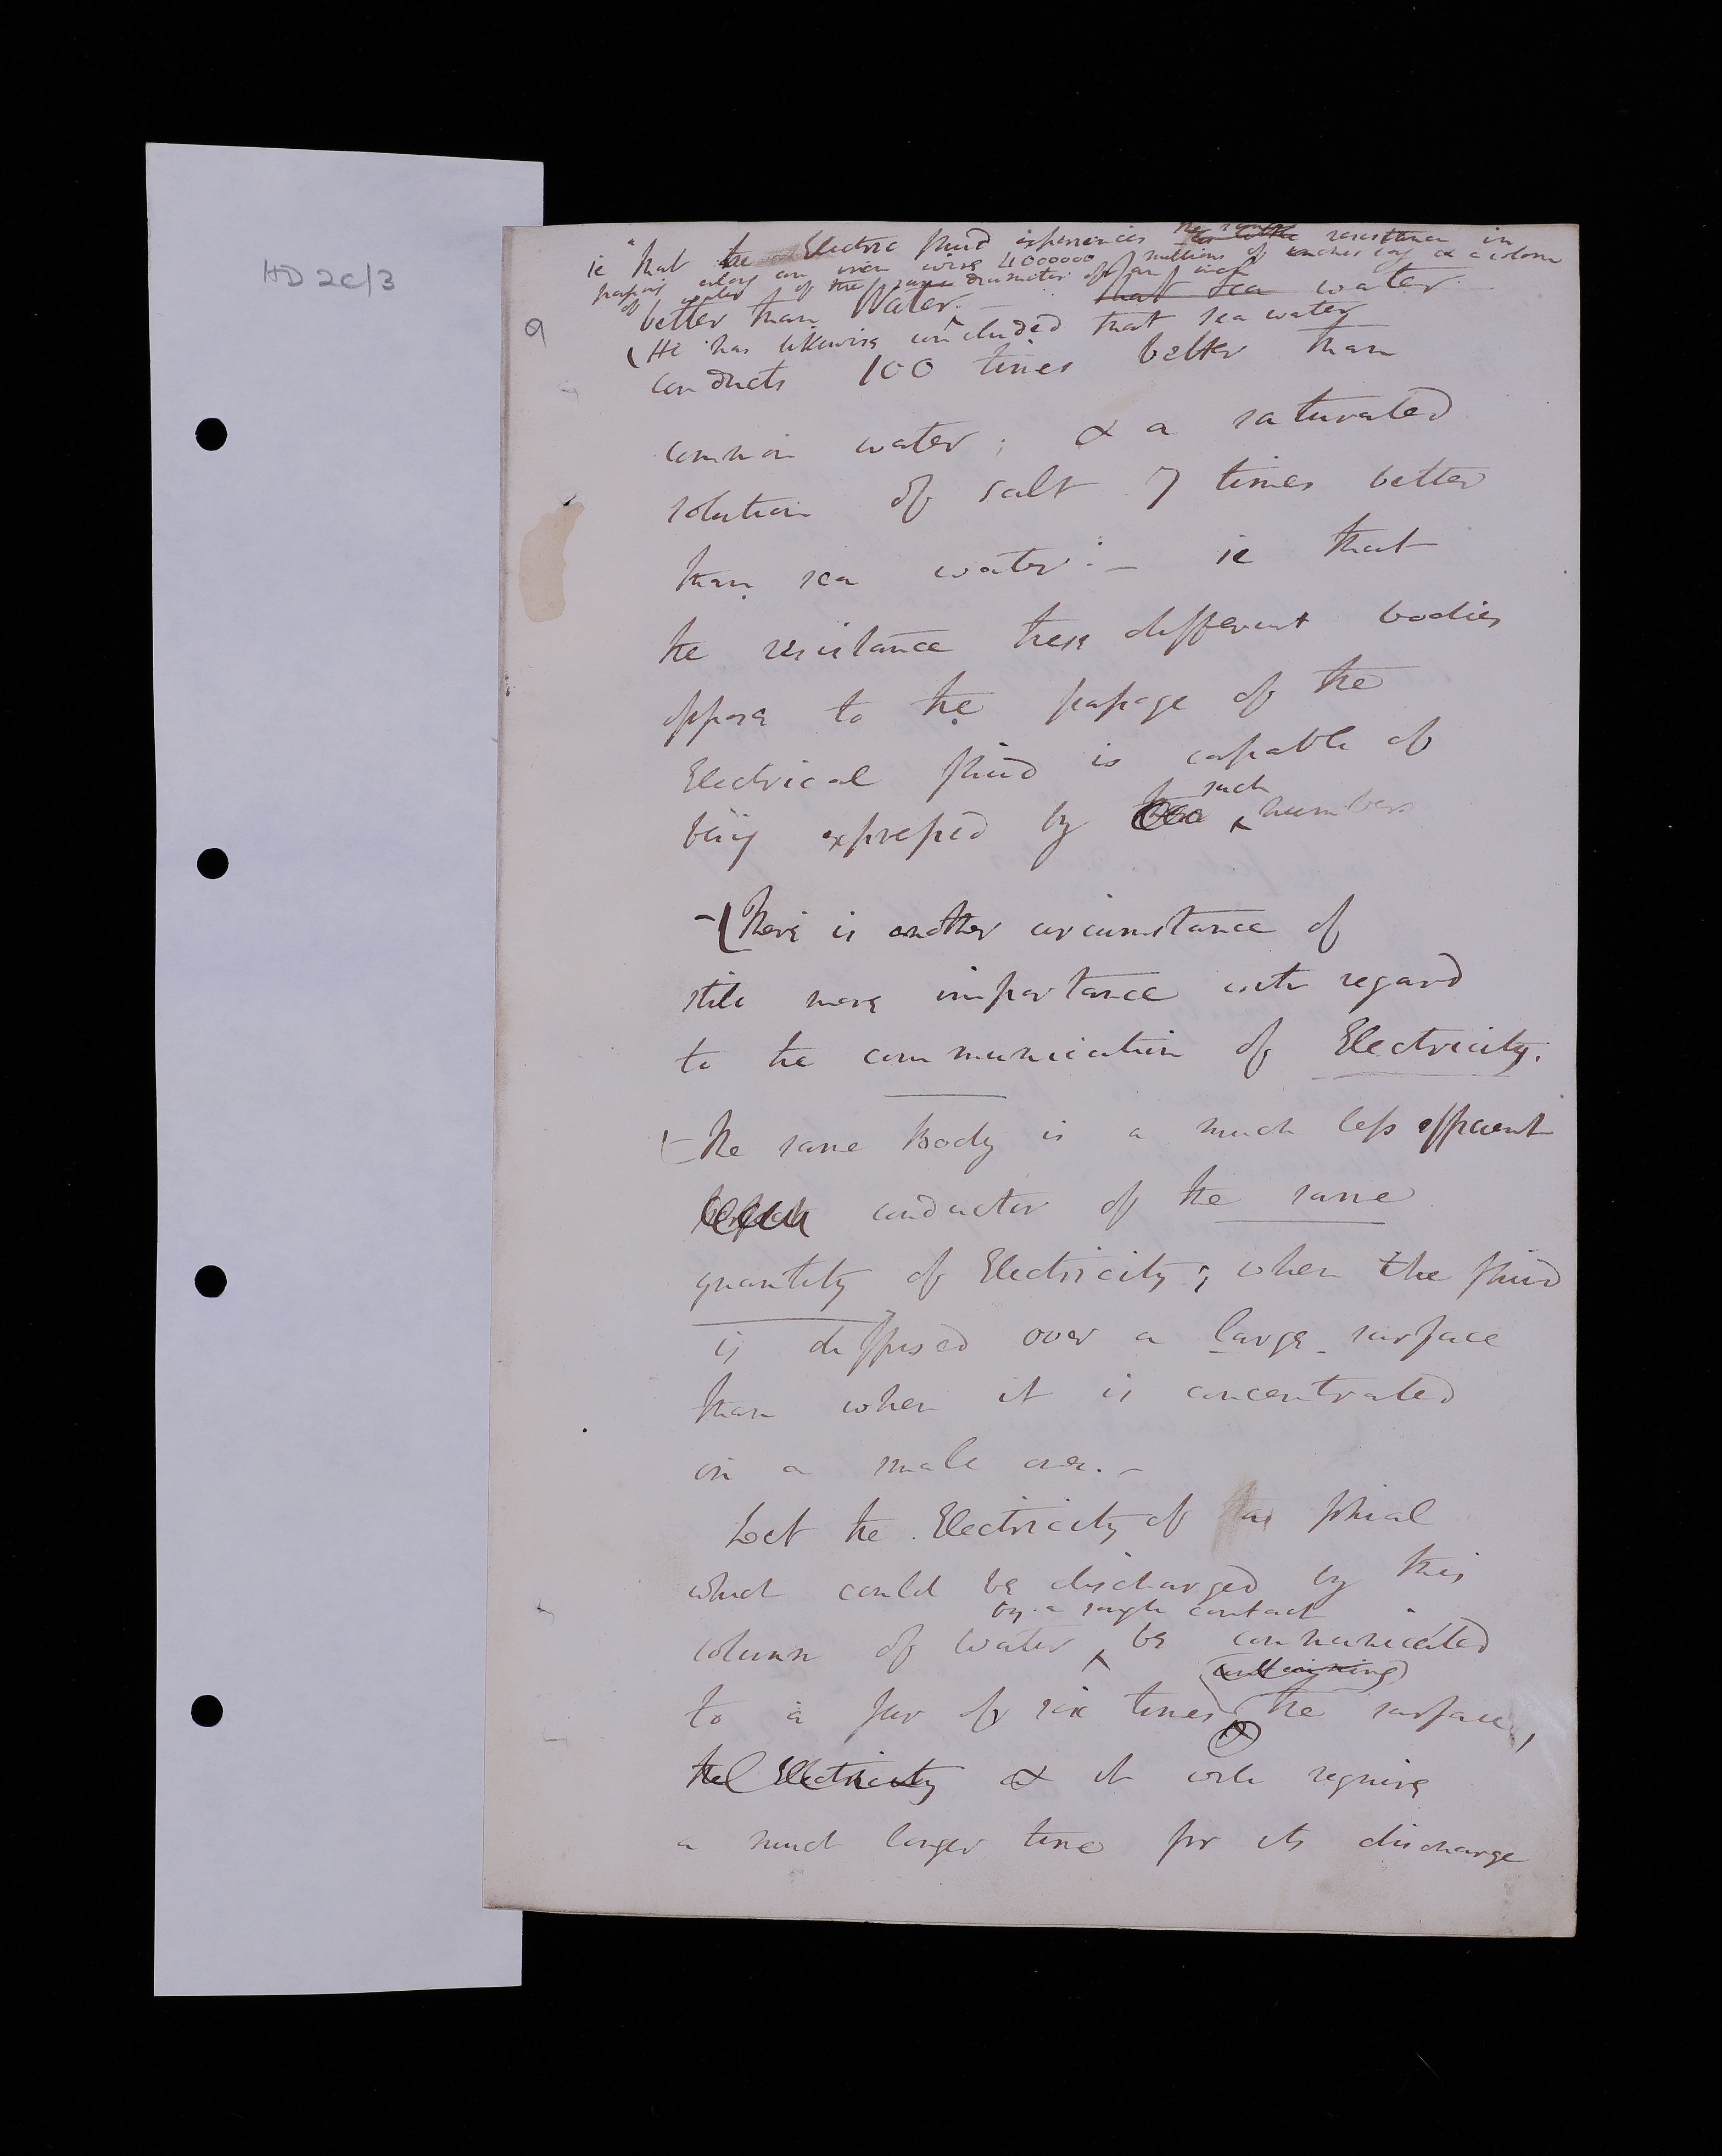 HD 2C/3
9
ie that the Electric fluid experiences the same resistance in
passing along an iron wire 4000000 millions of inches long & a column
of water of the same diameter of an inch
better than Water. - that sea water
(He has likewise concluded that sea water
conducts 100 times better than
common water; & a saturated
solution of salt 7 times better
than sea water:- ie that
the resistance these different bodies
oppose to the passage of the
Electrical fluid is capable of
such
being expressed by numbers
-(There is another circumstance of
still more importance with regard
to the communication of Electricity.
- the same Body is a much less efficient
conductor of the same
quantity of Electricity; when the fluid
is diffused over a large surface
than when it is concentrated
on a small one.-
Let the Electricity of a phial
which could be discharged by this
by a single contact
column of water be communicated
to a Jar of six times the surface,
&
the Electricity & it will require
a much longer time for its discharge